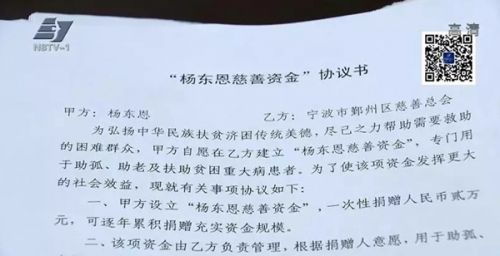 NBTV-1
高清
“杨东恩慈善资金”协议书
甲方：杨东恩 乙方：宁波市鄞州区慈善总会
为弘扬中华民族扶贫济困传统美德，尽已之力帮助需要救助
的困难群众，甲方自愿在乙方建立“杨东恩慈善资金”，专门用
于助孤、助老及扶助贫困重大病患者。为了使该项资金发挥更大
的社会效益，现就有关事项协议如下：
一、甲方设立“杨东恩慈善资金”，一次性捐赠人民币贰万
元，可逐年累积捐赠充实资金规模。
二、该项资金由乙方负责管理，根据捐赠人意愿，用于助孤、